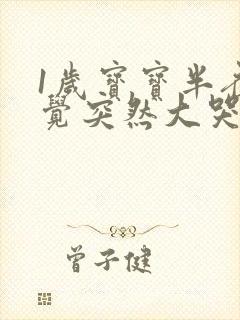 1歲寶寶半夜
覺突然大哭
曾子健